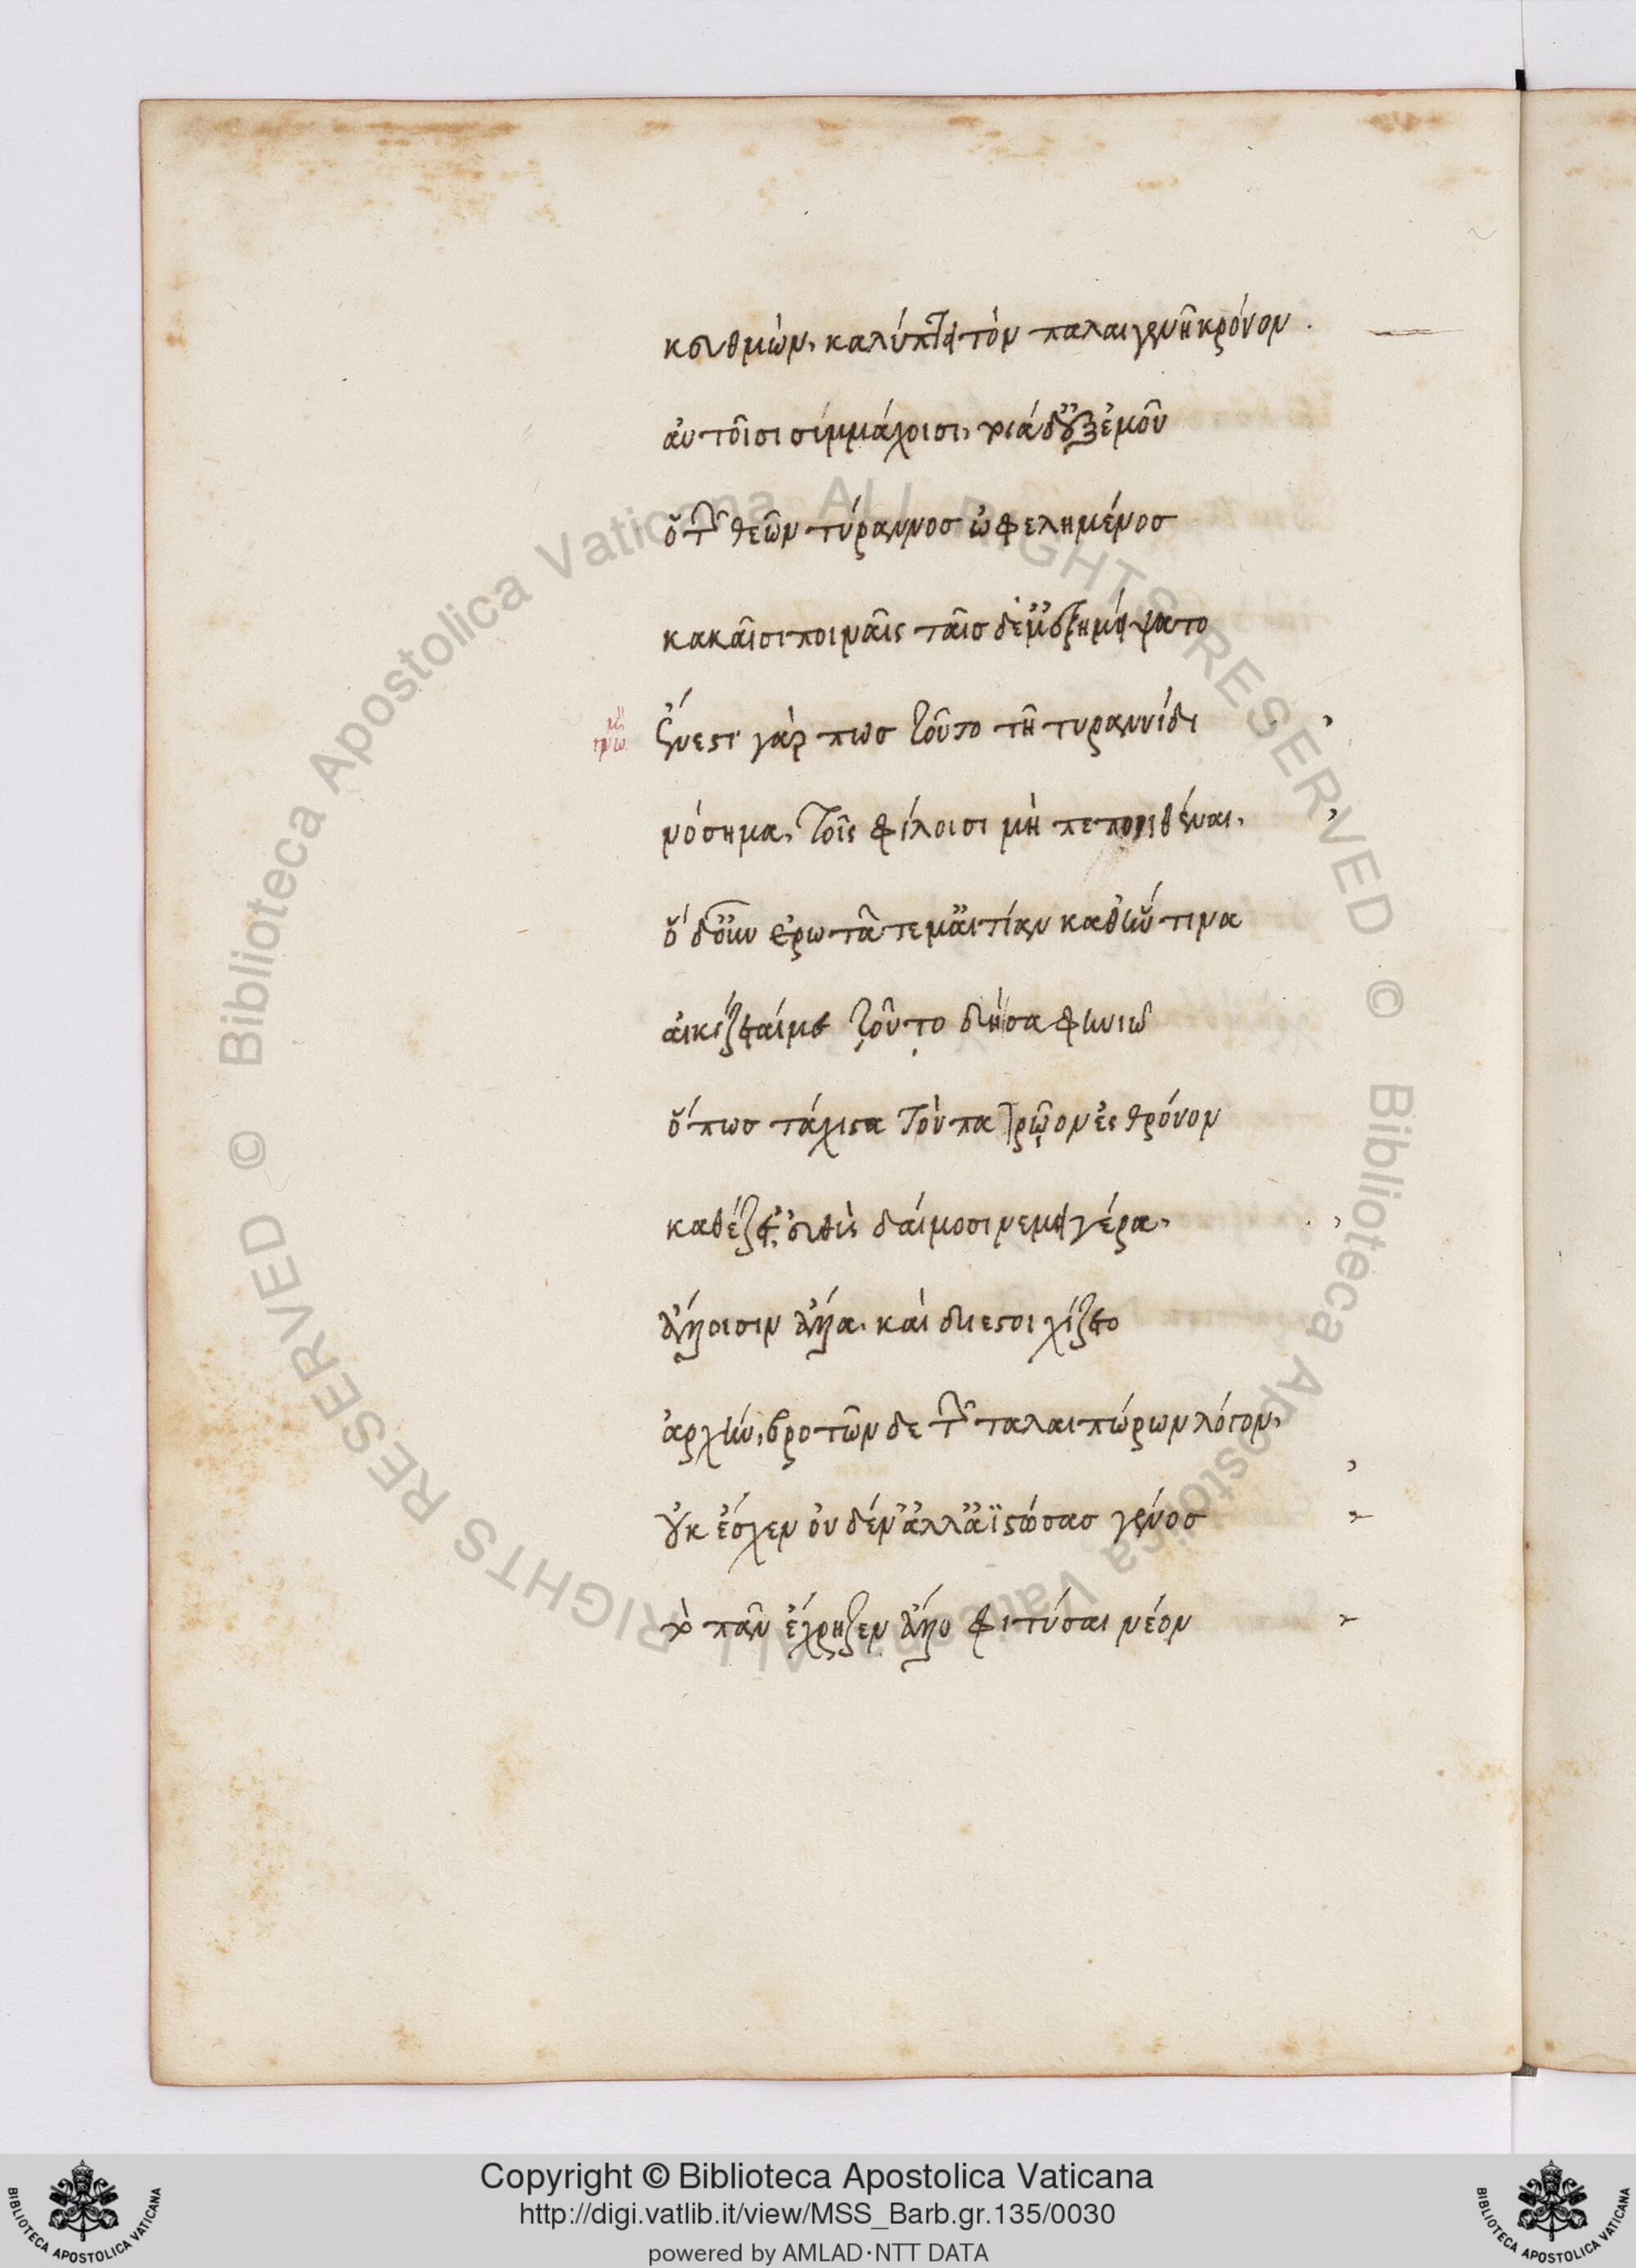 κευθμὼν, καλύπτει τὸν παλαιγενῆ κρόνον.
ἀυτοῖσι συμμάχοισι, τοιάδ' ἐξ ἐμοῦ
ὁ τῶν θεῶν τύραννοσ ὠφελημένοσ
κακαῖσι ποιναῖς ταῖσ δέ μ' ἐξημείψατο
μὴ γνω
ἔνεστι γάρ πωσ τοῦτο τῆ τυραννίδι
νόσημα, τοῖς φίλοισι μὴ πεποιθέναι,
ὃ δ' οὖν ἐρωτᾶτε μ' ἀιτίαν καθ' ἥν τινα
ἀικίζεταί με τοῦτο δὴ σαφηνιῶ
ὅπωσ τάχιστα τὸν πατρῶον ἐς θρόνον
καθέζετ', ἐυθὺς δαίμοσι νέμει γέρα,
ἄλλοισιν ἄλλα. καὶ διεστοιχίζετο
ἀρχήν, βροτῶν δε τῶν ταλαιπώρων λόγον,
οὐκ ἔσχεν ὀυδέν' ἀλλ' ἀϊστώσασ γένοσ
τὸ πᾶν ἔχρηζεν ἄλλο φιτύσαι νέον
Copyright © Biblioteca Apostolica Vaticana
http://digi.vatlib.it/view/MSS_Barb.gr.135/0030
powered by AMLAD·NTT DATA
BIBLIOTECA APOSTOLICA VATICANA
BIBLIOTECA APOSTOLICA VATICANA
© Biblioteca Apostolica Vaticana ALL RIGHTS RESERVED © Biblioteca Apostolica Vaticana ALL RIGHTS RESERVED